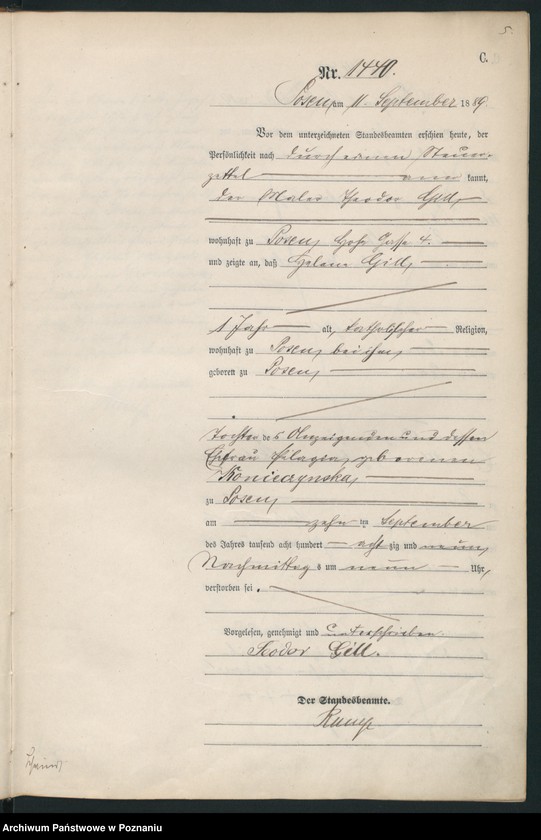 5.
C.
Nr. 1440.
Posen, am 11. September 1889.
Vor dem unterzeichneten Standesbeamten erschien heute, der
Persönlichkeit nach durch einen Steuer-
zettel anerkannt,
der Maler Theodor Gill,
wohnhaft zu Posen, Gasse 4.
und zeigte an, daß Helene Gill,
1 Jahr alt, katholischer Religion,
wohnhaft zu Posen, bei ihm,
geboren zu Posen,
Tochter des Anzeigenden und dessen
Ehefrau Pelagia, geborenen
Konieczynska,
zu Posen,
am zehn im September
des Jahres tausend acht hundert acht zig und neun,
Nachmittags um neun Uhr,
verstorben sei.
Vorgelesen, genehmigt und unterschrieben
Teodor Gill.
Der Standesbeamte.
Archiwum Państwowe w Poznaniu